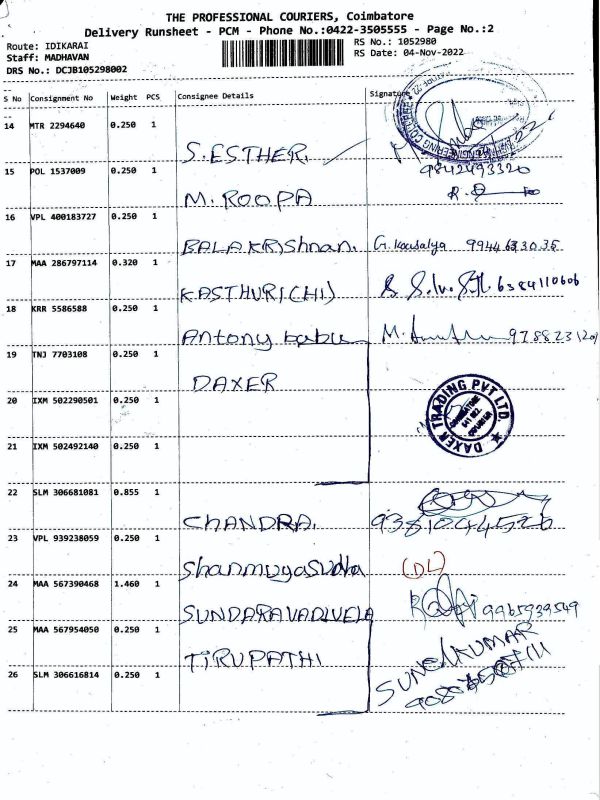 THE PROFESSIONAL COURIERS, Coimbatore
Delivery Runsheet - PCM - Phone No.:0422-3505555 - Page No.:2
Route: IDIKARAI
RS No.: 1052980
Staff: MADHAVAN
RS Date: 04-Nov-2022
DRS No.: DCJB105298002
S No Consignment No Weight PCS Consignee Details Signature
14 MTR 2294640 0.250 1
S. ESTHER
9842493320
15 POL 1537009 0.250 1
M. ROOPA
16 VPL 400183727 0.250 1
BALAKRIShnan. G. Kousalya 9944683035
17 MAA 286797114 0.320 1
KASTHURI(CHI) 6384110606
18 KRR 5586588 0.250 1
Antony babu
19 TNJ 7703108 0.250 1
DAXER
20 IXM 502290501 0.250 1
DAXER TRADING PVT LTD.
21 IXM 502492140 0.250 1
22 SLM 306681081 0.855 1
CHANDRA. 9381044520
23 VPL 939238059 0.250 1
ShanmugaSudha (DL)
24 MAA 567390468 1.460 1
SUNDARAVADIVELA 9965939549
25 MAA 567954050 0.250 1
TIRUPATHI SUNILKUMAR
26 SLM 306616814 0.250 1